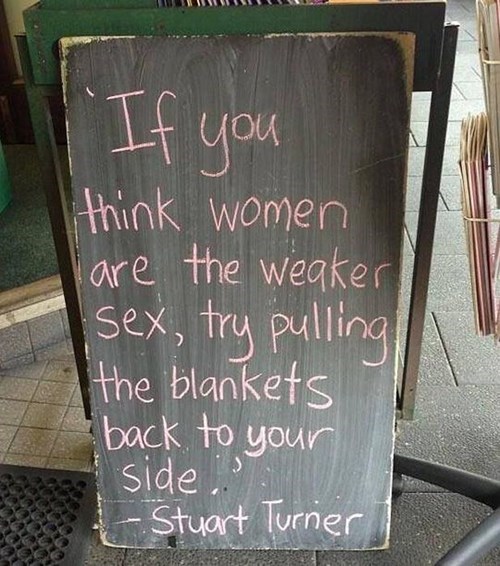 'If you
think women
are the weaker
sex, try pulling
the blankets
back to your
side.'
- Stuart Turner